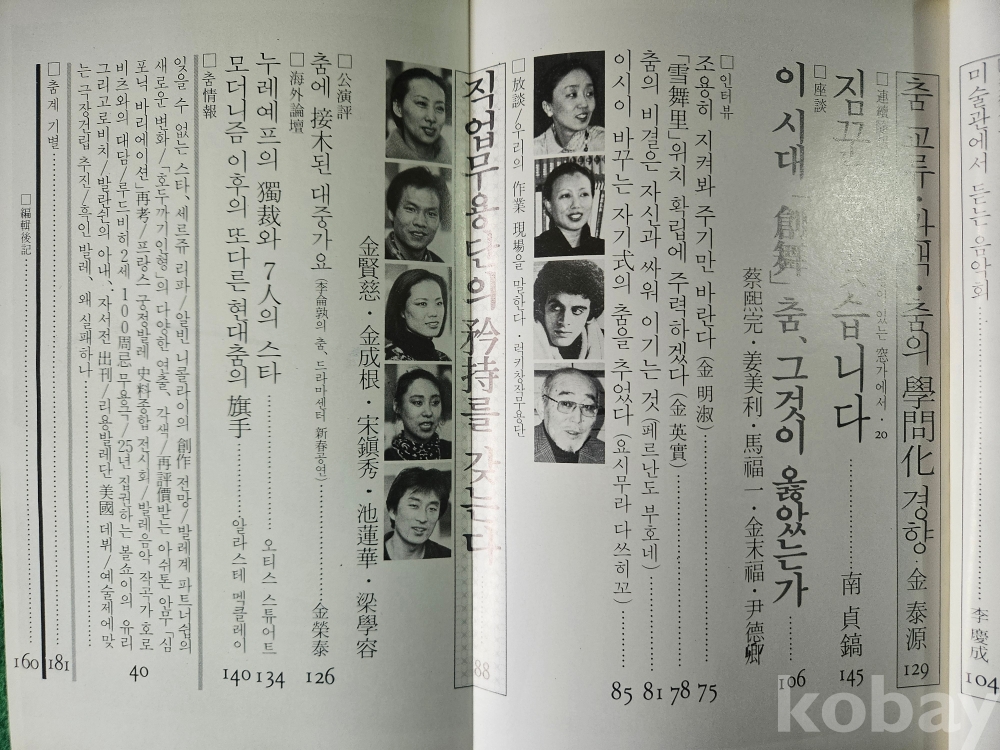 미술관에서 듣는 음악회
李慶成
104
춤 교류·
춤의 學問化 경향·金泰源
129
□連續
있는 窓가에서·20
짐꾸
습니다
南貞鎬
145
□座談
이 시대 「創舞」 춤, 그것이 옳았는가
106
蔡熙完·姜美利·馬福一·金末福·尹德卿
□인터뷰
조용히 지켜봐 주기만 바란다(金明淑)
75
「雪舞里」위치 확립에 주력하겠다(金英實)
78
춤의 비결은 자신과 싸워 이기는 것(페르난도 부호네)
81
이시이 바꾸는 자기式의 춤을 추었다(요시무라 다쓰히꼬)
85
□放談/우리의 作業 現場을 말한다·럭키창작무용단
직업무용단의 矜持를 갖는다
88
金賢慈·金成根·宋鎭秀·池蓮華·梁學容
□公演評
춤에 接木된 대중가요(李倫敦의 춤, 드라마세터 新春공연)
金榮泰
126
□海外論壇
누레예프의 獨裁와 7人의 스타
오티스 스튜어트
134
모더니즘 이후의 또다른 현대춤의 旗手
알라스테 멕클레이
140
□춤情報
잊을 수 없는 스타, 세르쥬 리파/알빈 니콜라이의 創作 전망/발레계 파트너쉽의
새로운 변화/「호두까기인형」의 다양한 연출, 각색/再評價받는 아쉬톤 안무 「심
포닉 바리에이션」再考/프랑스 궁정발레 史料종합 전시회/발레음악 작곡가 호로
비츠와의 대담/루드비히 2세 100周忌 무용극/25년 집권하는 볼쇼이의 유리
그리고로비치/발란쉰의 아내, 자서전 出刊/리용발레단 美國 데뷔/예술제에 맞
는 극장건립 추진/흑인 발레, 왜 실패하나
40
□춤계 기별
181
□編輯後記
160
kobay